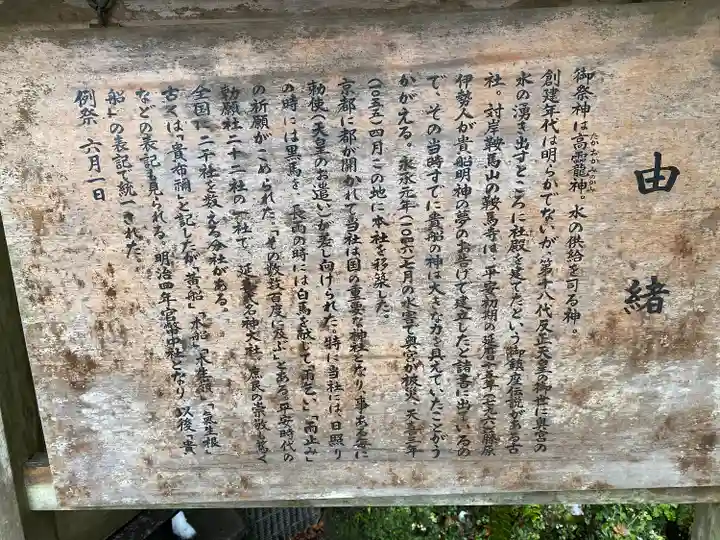 由緒
たかおかみのかみ
御祭神は高龗神。水の供給を司る神。
創建年代は明らかでないが、第十八代反正天皇の御世に奥宮の
水の湧き出すところに社殿を建てたという御鎮座伝説がある古
社。対岸鞍馬山の鞍馬寺は、平安初期の延暦十五年(七九六)藤原
伊勢人が貴船明神の夢のお告げで建立したと諸書に出ているの
で、その当時すでに貴船の神は大きな力を具えていたことがう
かがえる。永承元年(一〇四六)七月の水害で奥宮が被災、天喜三年
(一〇五五)四月この地に本社を移築した。
京都に都が開かれて当社は国の重要な神社となり、事ある毎に
勅使(天皇のお遣い)が差し向けられた。特に当社には、日照り
の時には黒馬を、長雨の時には白馬を献じて「雨乞い」「雨止み」
の祈願がこめられた。「その数数百度に及ぶ」とある。平安時代の
勅願社二十二社の一社で、延喜式名神大社、庶民の崇敬も篤く
全国に二千社を数える分社がある。
古くは「貴布禰」と記したが「黄船」「木船」「気生嶺」「気生根」
などの表記も見られる。明治四年官幣中社となり、以後「貴
船」の表記で統一された。
例祭 六月一日